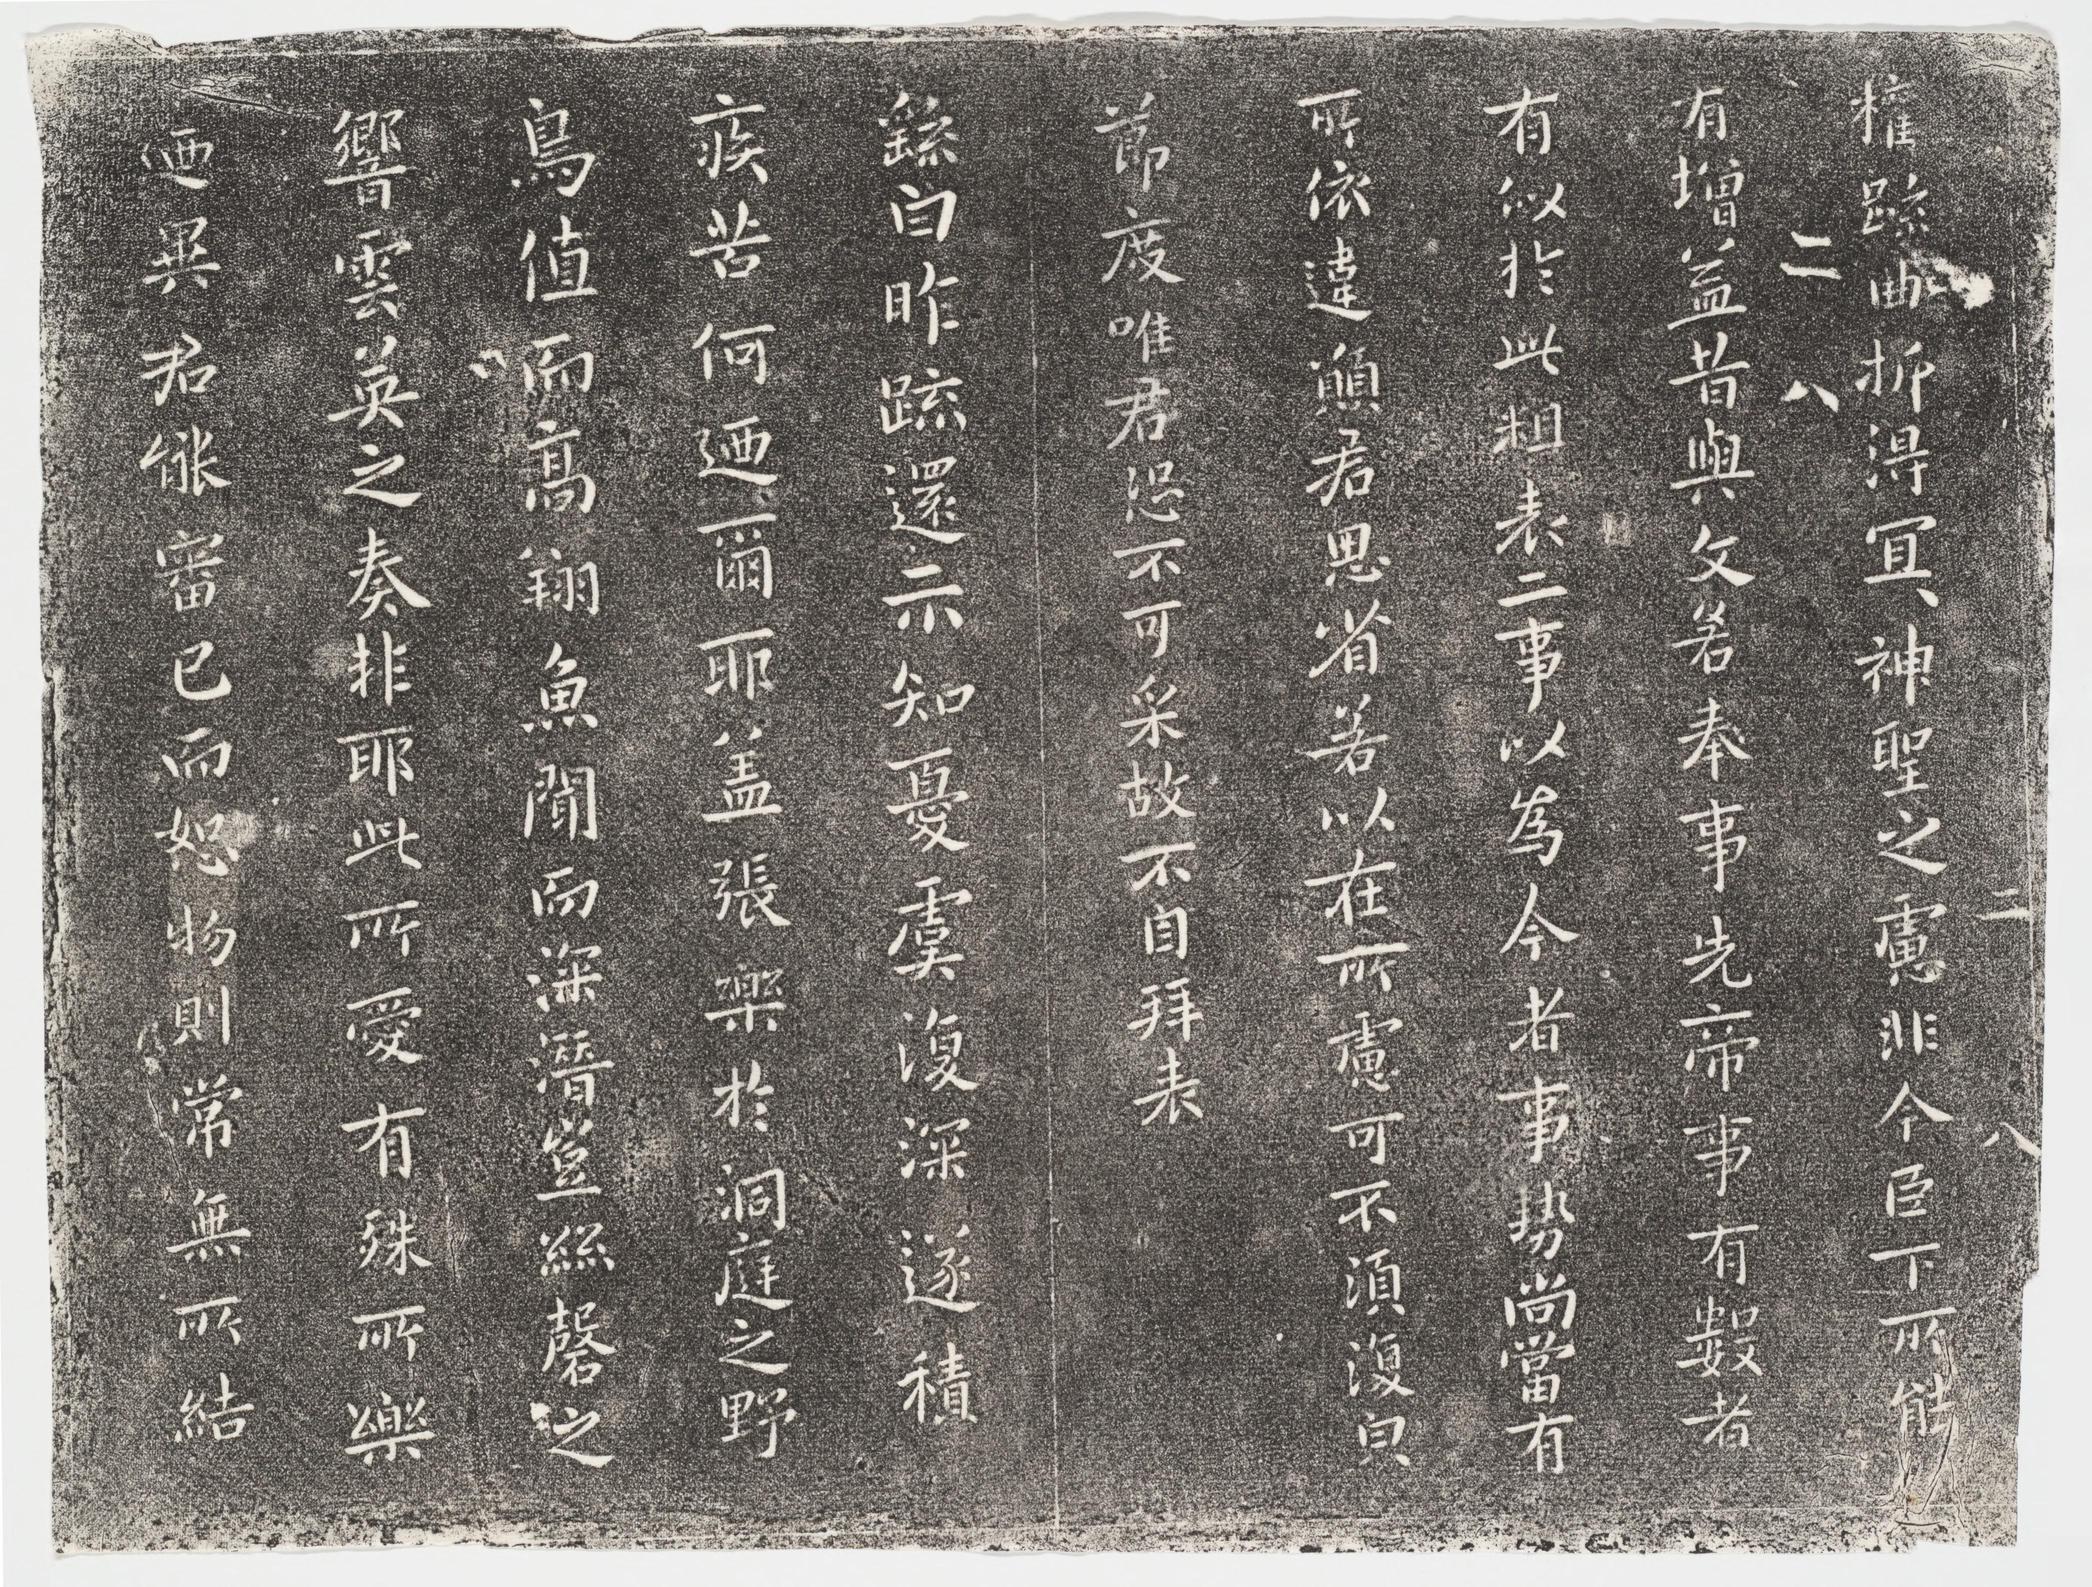 權疏曲折得宜神聖之慮非今臣下所能
有增益昔與文若奉事先帝事有數者
有似於此粗表二事以為今者事勢尚當有
所依違願君思省若以在所慮可不須復貌
節度唯君恐不可采故不自拜表
繇白昨疏還示知憂虞復深遂積
疾苦何迺爾耶蓋張樂於洞庭之野
鳥值而高翔魚聞而深潛豈絲磬之
響雲英之奏非耶此所愛有殊所樂
迺異君能審己而恕物則常無所結
二八
二八